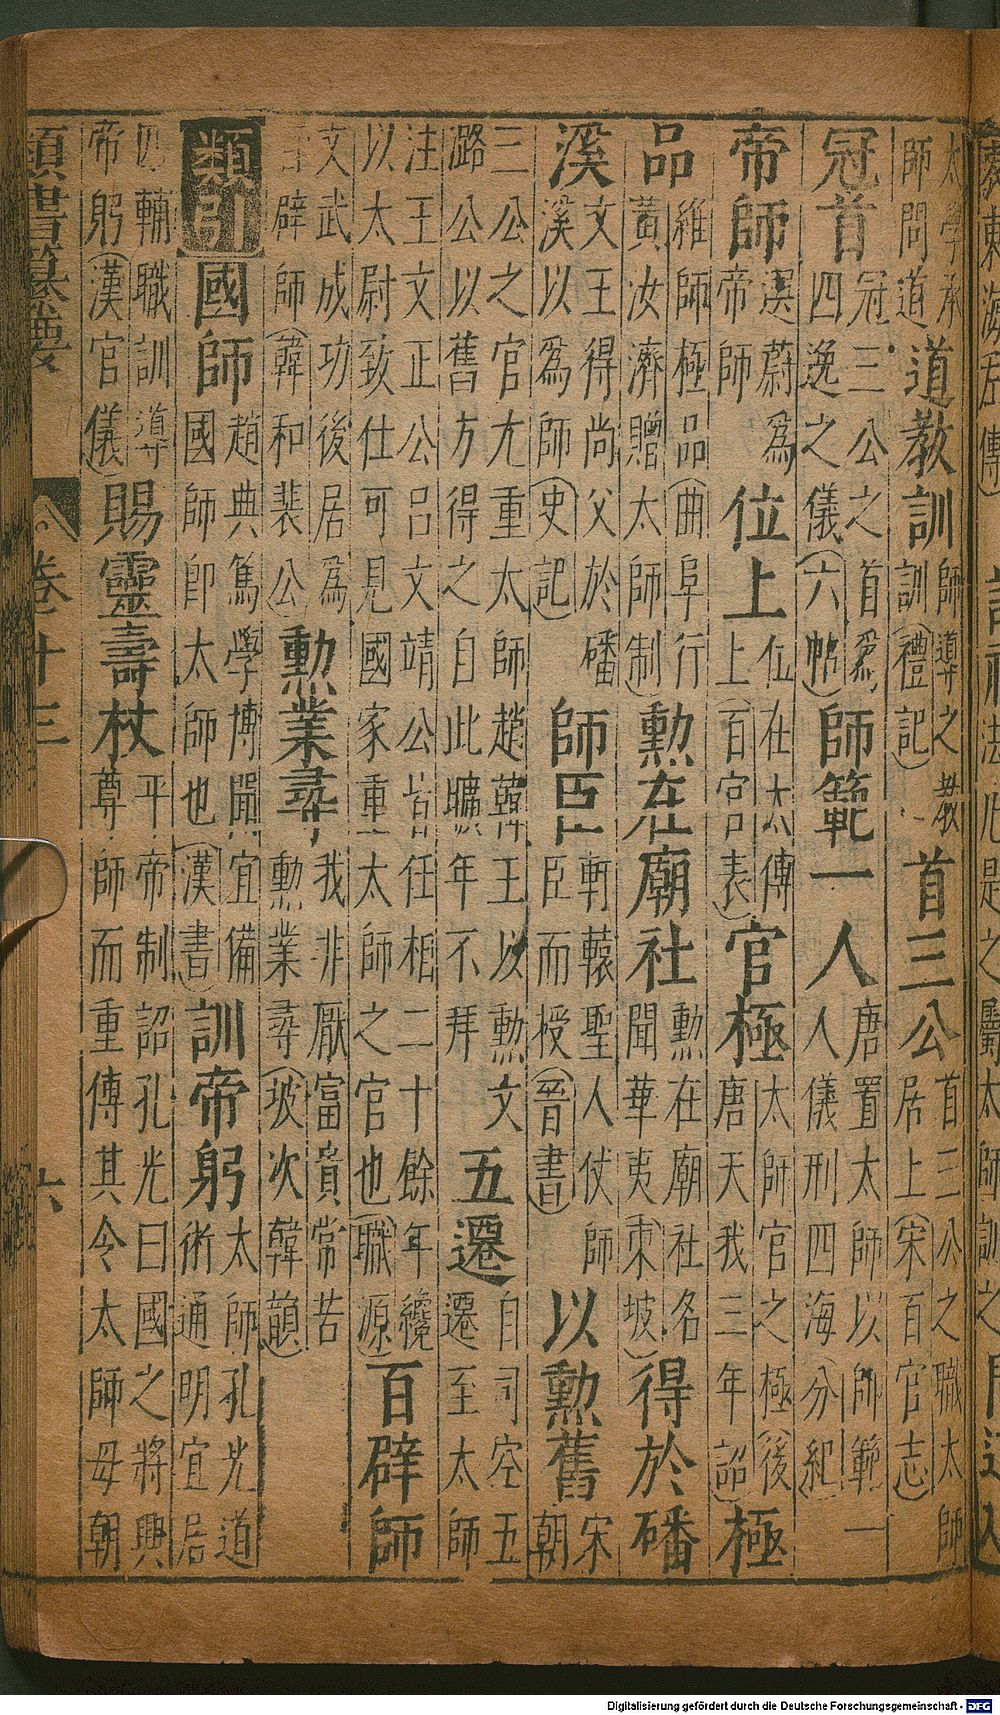 太學承師問道 道教訓 師導之教訓(禮記) 首三公 首三公之職太師居上(宋百官志)
冠首 冠三公之首爲四逸之儀(六帖) 師範一人 唐置太師以師範一人儀刑四海(分紀)
帝師 選蔚爲帝師 位上 位在太傅上(百官表) 官極 太師官之極(後唐天我三年詔) 極
品 維師極品(曲阜行黃汝濟贈太師制) 勲在廟社 勲在廟社名聞華夷(東坡) 得於磻
溪 文王得尚父於磻溪以爲師(史記) 師臣 軒轅聖人仗師臣而授(晉書) 以勲舊 宋朝
三公之官尤重太師趙韓王以勲文潞公以舊方得之自此曠年不拜 五遷 自司空五遷至太師
注王文正公呂文靖公皆任相二十餘年纔以太尉致仕可見國家重太師之官也(職源) 百辟師
文武成功後居爲百辟師(韓和裴公) 勲業尋 我非厭富貴常苦勲業尋(坡次韓韻)
類引 國師 趙典篤學博聞宜備國師即太師也(漢書) 訓帝躬 太師孔光道術通明宜居
四輔職訓導帝躬(漢官儀) 賜靈壽杖 平帝制詔孔光曰國之將興尊師而重傅其令太師毋朝
類書纂要 卷十三 六
Digitalisierung gefördert durch die Deutsche Forschungsgemeinschaft - DFG